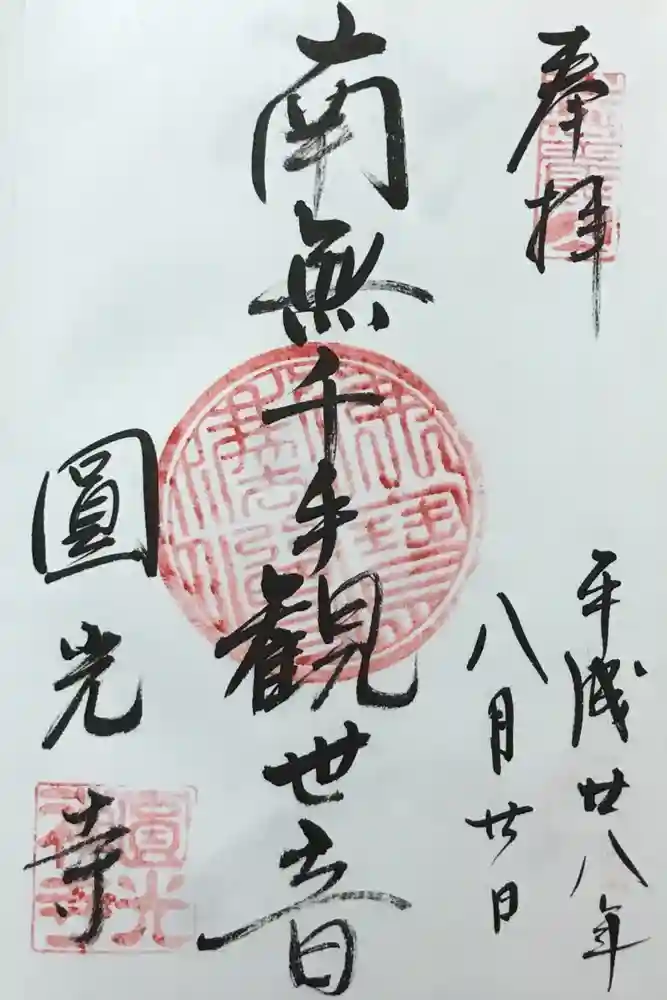 奉拝
平成廿八年
八月廿日
南無千手観世音
圓光寺
圓光禅寺